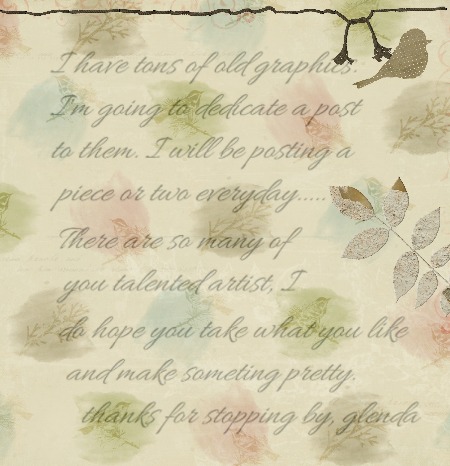 I have tons of old graphics.
I'm going to dedicate a post
to them. I will be posting a
piece or two everyday.....
There are so many of
you talented artist, I
do hope you take what you like
and make someting pretty.
thanks for stopping by, glenda